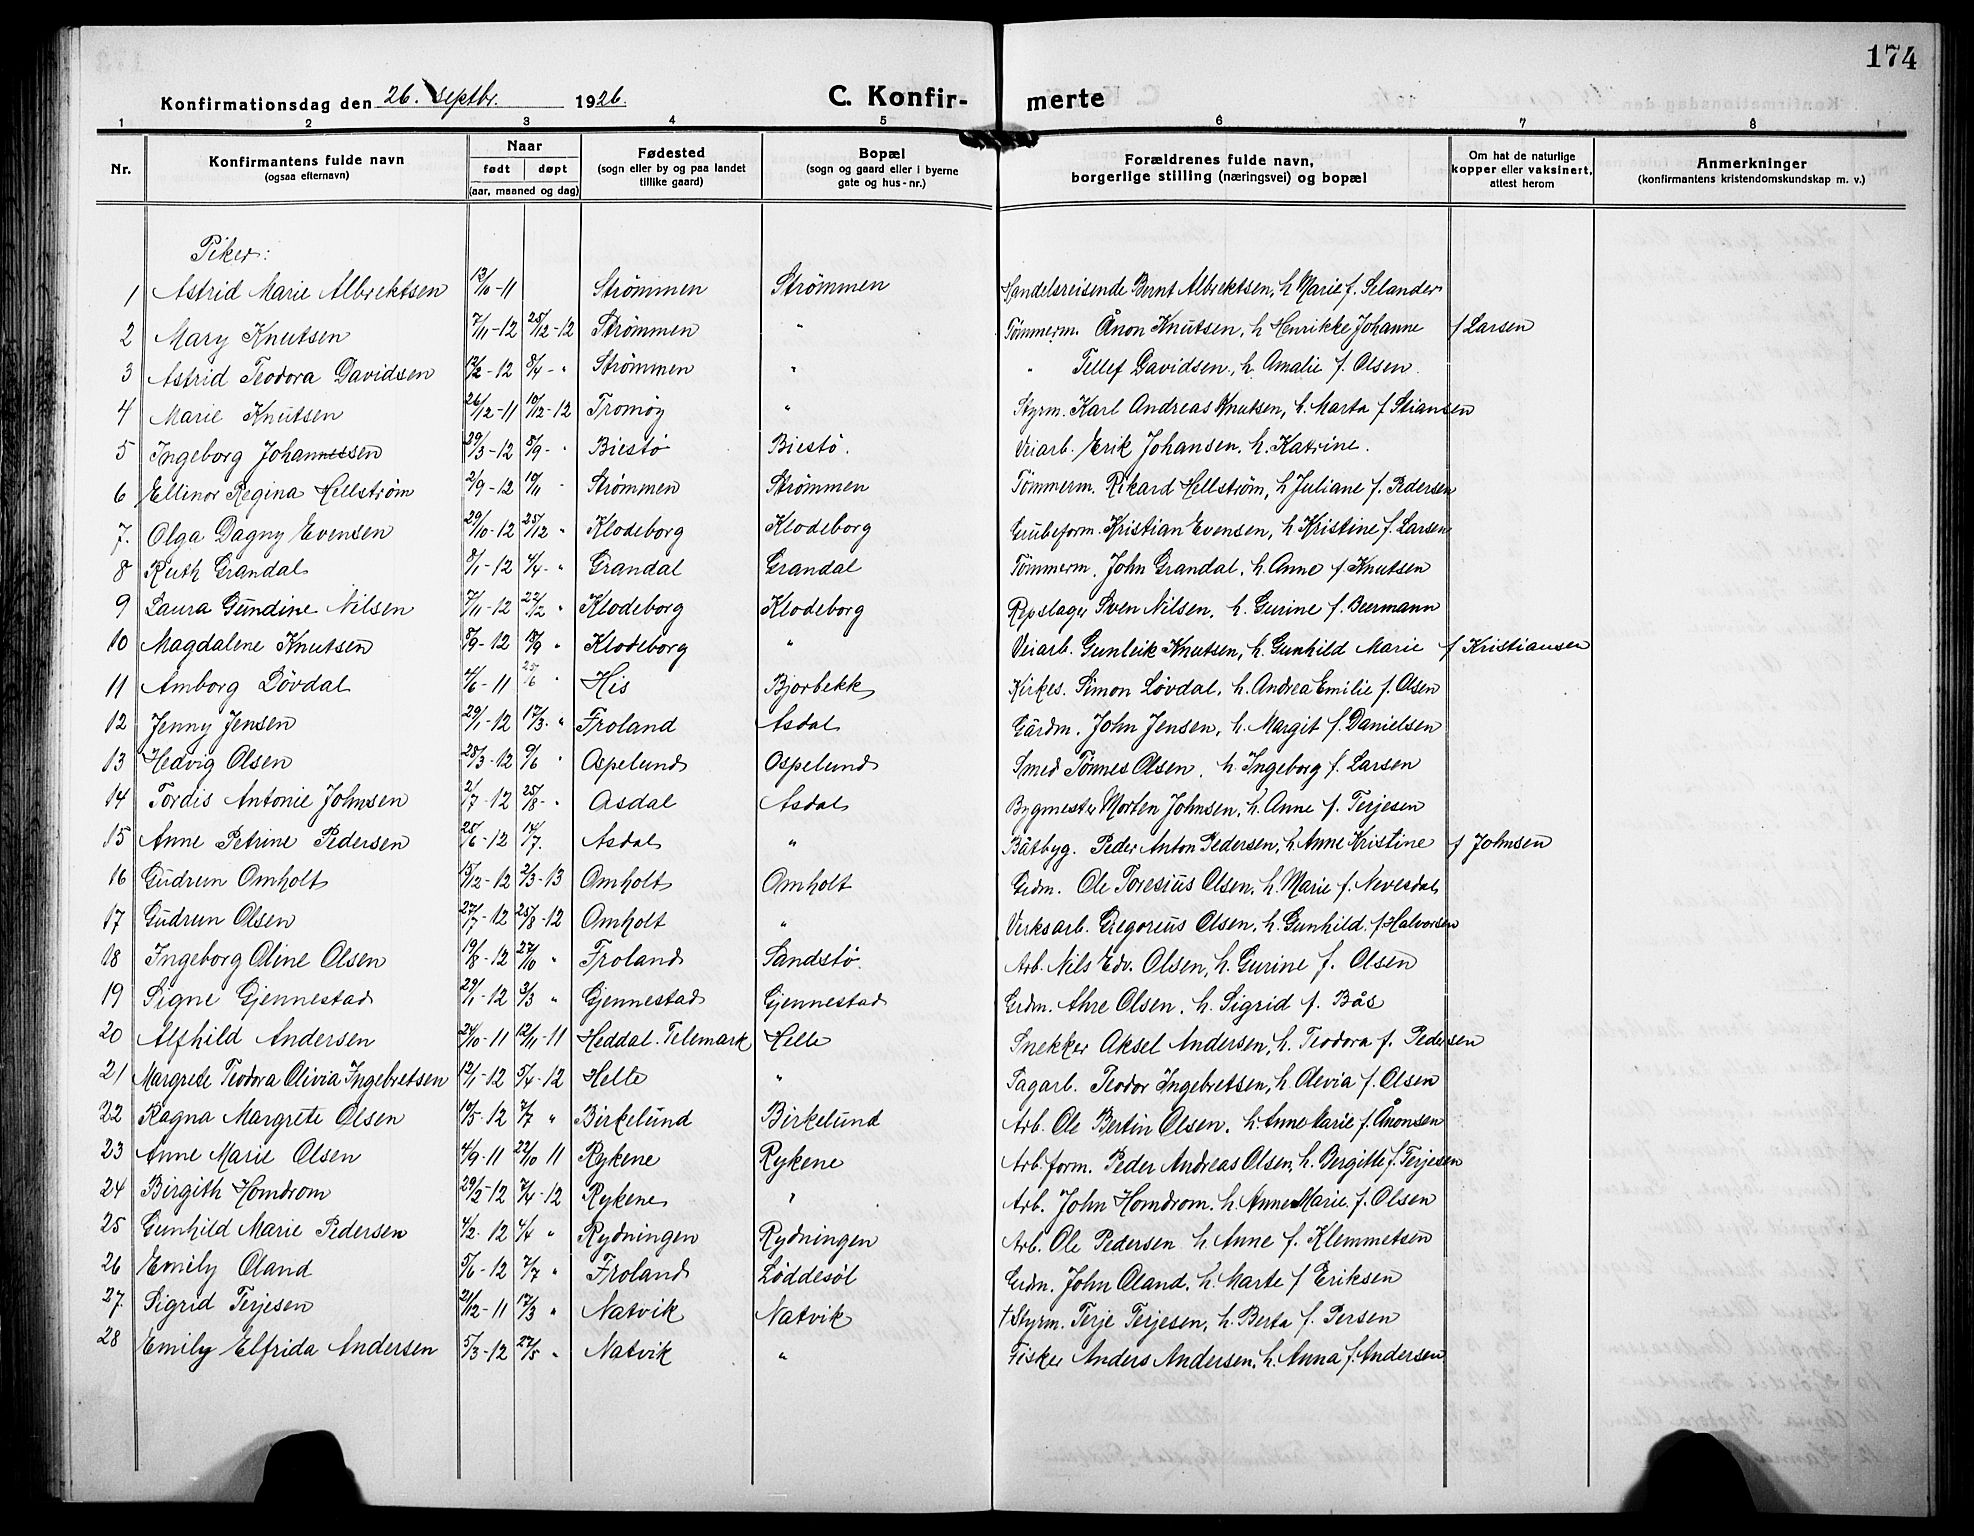 174
Konfirmationsdag den 26. Septbr. 1926. C. Konfir- merte
1 2 3 4 5 6 7 8
Nr. Konfirmantens fulde navn (ogsaa efternavn) Naar født døpt (aar, maaned og dag) Fødested (sogn eller by og paa landet tillike gaard) Bopæl (sogn og gaard eller i byerne gate og hus-nr.) Forældrenes fulde navn, borgerlige stilling (næringsvei) og bopæl Om hat de naturlige kopper eller vaksinert, attest herom Anmerkninger (konfirmantens kristendomskundskap m. v.)
Piker:
1 Astrid Marie Albrektsen 13/10-11 Strømmen Strømmen Handelsreisende Bernt Albrektsen, h. Marie f. Selander
2 Mary Knutsen 7/11-12 25/12-12 Strømmen " Tømmerm. Ånon Knutsen, h. Henrikke Johanne f Larsen
3 Astrid Teodora Davidsen 12/2-12 8/4- " Strømmen " " Tellef Davidsen, h. Amalie f. Olsen.
4 Marie Knutsen 26/12-11 10/12-12 Tromøy " Styrm. Karl Andreas Knutsen, h. Marta f Stiansen
5 Ingeborg Johannessen 29/3-12 8/9- " Biestø Biestø. Veiarb. Erik Johansen. h. Katrine.
6 Ellinor Regina Hellstrøm 2/9-12 10/11 " Strømmen Strømmen Tømmerm. Rikard Hellstrøm, h Juliane f. Pedersen
7. Olga Dagny Evensen 29/10-12 25/12 " Klodeborg Klodeborg Grubeform. Kristian Evensen, h Kristine f. Larsen
8 Ruth Grandal 8/1-12 4/4- " Grandal Grandal Tømmerm. John Grandal, h. Anne f Knutsen
9 Laura Gundine Nilsen 7/11-12 22/12 " Klodeborg Klodeborg Repslager Sven Nilsen, h. Gurine f. Beermann
10 Magdalene Knutsen 8/9-12 18/9 " Klodeborg " Veiarb. Gunleik Knutsen, h. Gunhild Marie f Kristiansen
11 Amborg Løvdal 4/6-11 25/6 " His Bjorbekk Kirkes. Simon Løvdal, h. Andrea Emilie f. Olsen
12 Jenny Jensen 29/1-12 17/3. " Froland Asdal Gårdm. John Jensen, h. Margit f. Danielsen
13 Hedvig Olsen 28/3-12 9/6 " Ospelund Ospelund Smed Tønnes Olsen, h. Ingeborg f. Larsen
14 Tordis Antonie Johnsen 2/7-12 25/8- " Asdal Asdal Bygmester Morten Johnsen, h. Anne f. Terjesen
15 Anne Petrine Pedersen 25/6-12 14/7. Asdal " Båtbyg. Peder Anton Pedersen, h Anne Kristine f Johnsen
16 Gudrun Omholt 15/12-12 2/3-13 Omholt Omholt Grdm. Ole Toresius Olsen, h. Marie f. Nevesdal
17 Gudrun Olsen 27/7-12 25/8-12 Omholt " Verksarb. Gregorius Olsen, h. Gunhild. f Halvorsen
18 Ingeborg Oline Olsen 19/8-12 27/10 " Froland Sandstø. Arb. Nils Edv. Olsen, h. Gurine f. Olsen
19 Signe Gjennestad 29/1-12 3/3 " Gjennestad Gjennestad Grdm. Ahre Olsen, h. Sigrid f. Bås
20 Alfhild Andersen 24/10-11 12/11-11 Heddal. Telemark Helle Snekker Aksel Andersen, h. Teodora f. Pedersen
21 Margrete Teodora Olivia Ingebretsen 12/1-12 5/4-12 Helle " Fagarb. Teodor Ingebretsen, h. Olevia f. Olsen
22 Ragna Margrete Olsen 19/5-12 7/7 " Birkelund Birkelund Arb. Ole Bertin Olsen. h. Anne Marie f. Ånonsen
23 Anne Marie Olsen 4/9-11 22/10 11 Rykene Rykene Arb. form. Peder Andreas Olsen, h. Bergitte f. Terjesen
24 Birgith Homdrom 29/2-12 7/4-12 Rykene " Arb. John Homdrom. h. Anne Marie f. Olsen
25 Gunhild Marie Pedersen 4/2. 12 4/4 " Rydningen Rydningen Arb. Ole Pedersen h. Anne f. Klemmetsen
26 Emily Oland 5/6-12 7/7 " Froland Løddesøl Grdm. John Oland. h. Marte f Eriksen
27. Sigrid Terjesen 21/12-11 17/3 " Natvik Natvik † Styrm. Terje Terjesen, h. Berta f. Persen
28 Emily Elfrida Andersen 5/3-12 27/5 " Natvik " Fisker Anders Andersen, h. Anna f. Andersen